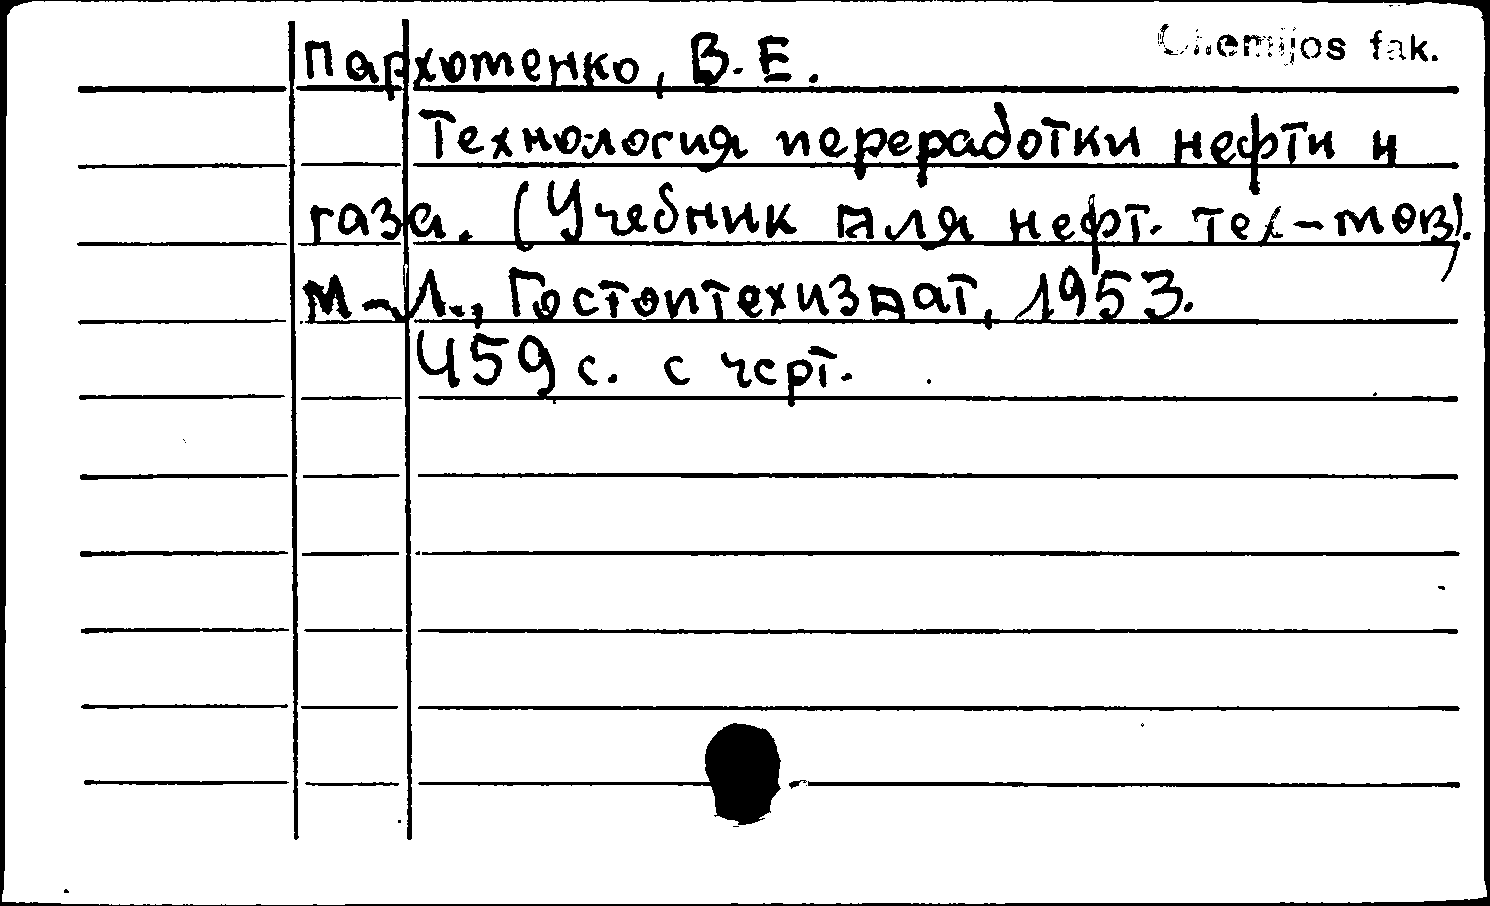 Chemijos fak.
Пархоменко, В. Е.
Технология переработки нефти и
газа. (Учебник для нефт. тех-мов).
М-Л., Гостоптехиздат, 1953.
459 с. с черт.